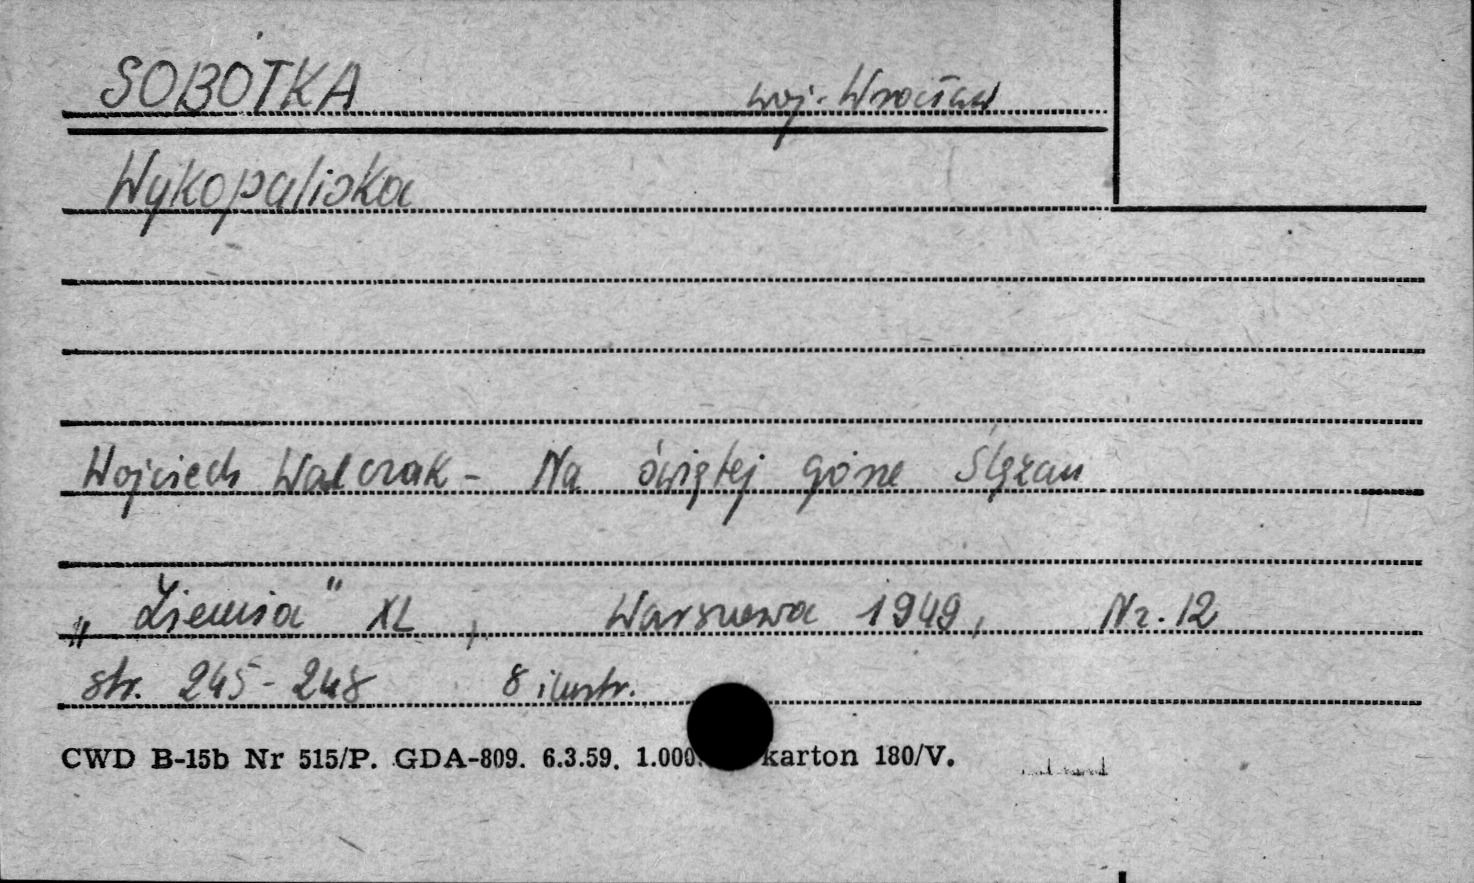 SOBÓTKA woj. Wrocław
Wykopaliska
Wojciech Walczak - Na świętej górze Ślężan
„Ziemia" XL, Warszawa 1949, Nr. 12
str. 245-248 8 ilustr.
CWD B-15b Nr 515/P. GDA-809. 6.3.59. 1.000. karton 180/V.